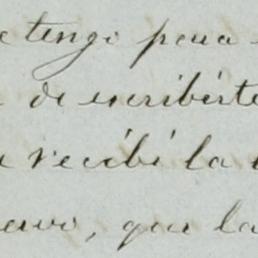 tengo para
de escribirte
recibí la
que la